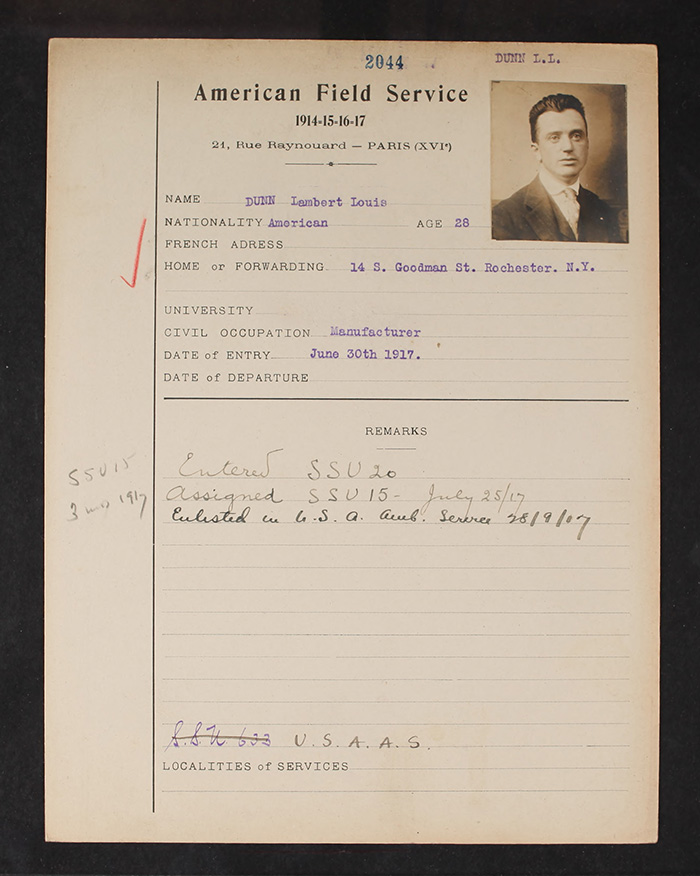 2044
DUNN L.L.
American Field Service
1914-15-16-17
21, Rue Raynouard — PARIS (XVIe)
NAME DUNN Lambert Louis
NATIONALITY American AGE 28
FRENCH ADRESS
HOME or FORWARDING 14 S. Goodman St. Rochester. N.Y.
UNIVERSITY
CIVIL OCCUPATION Manufacturer
DATE of ENTRY June 30th 1917.
DATE of DEPARTURE
REMARKS
Entered SSU 20
SSU 15
Assigned SSU 15 - July 25/17
3 mos 1917
Enlisted in U.S.A. Amb. Service 28/9/17
S.S.U. 633 U.S.A.A.S.
LOCALITIES of SERVICES